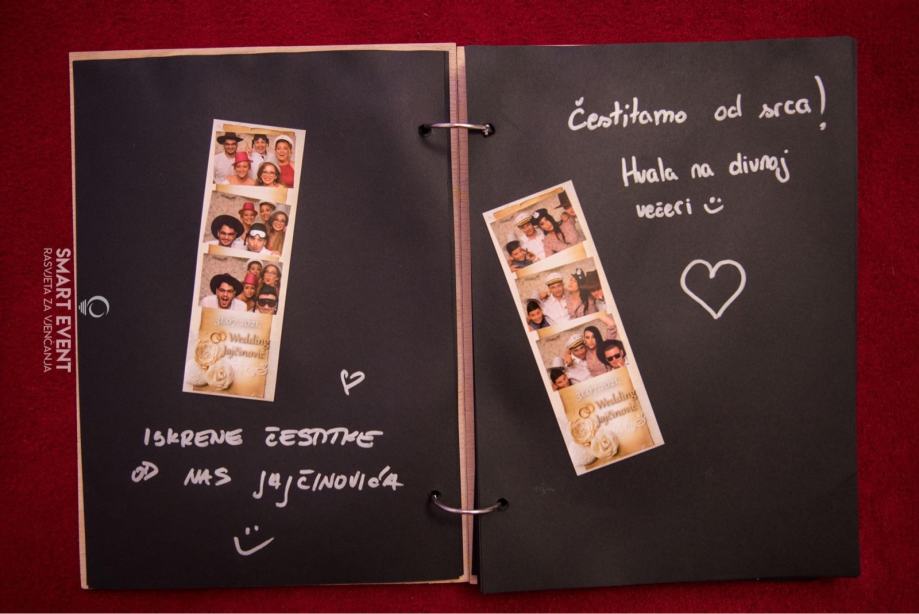 SMART EVENT
RASVJETA ZA VJENČANJA
Wedding
Jajčinović
ISKRENE ČESTITKE
OD NAS JAJČINOVIĆA
Čestitamo od srca!
Hvala na divnoj
večeri
Wedding
Jajčinović